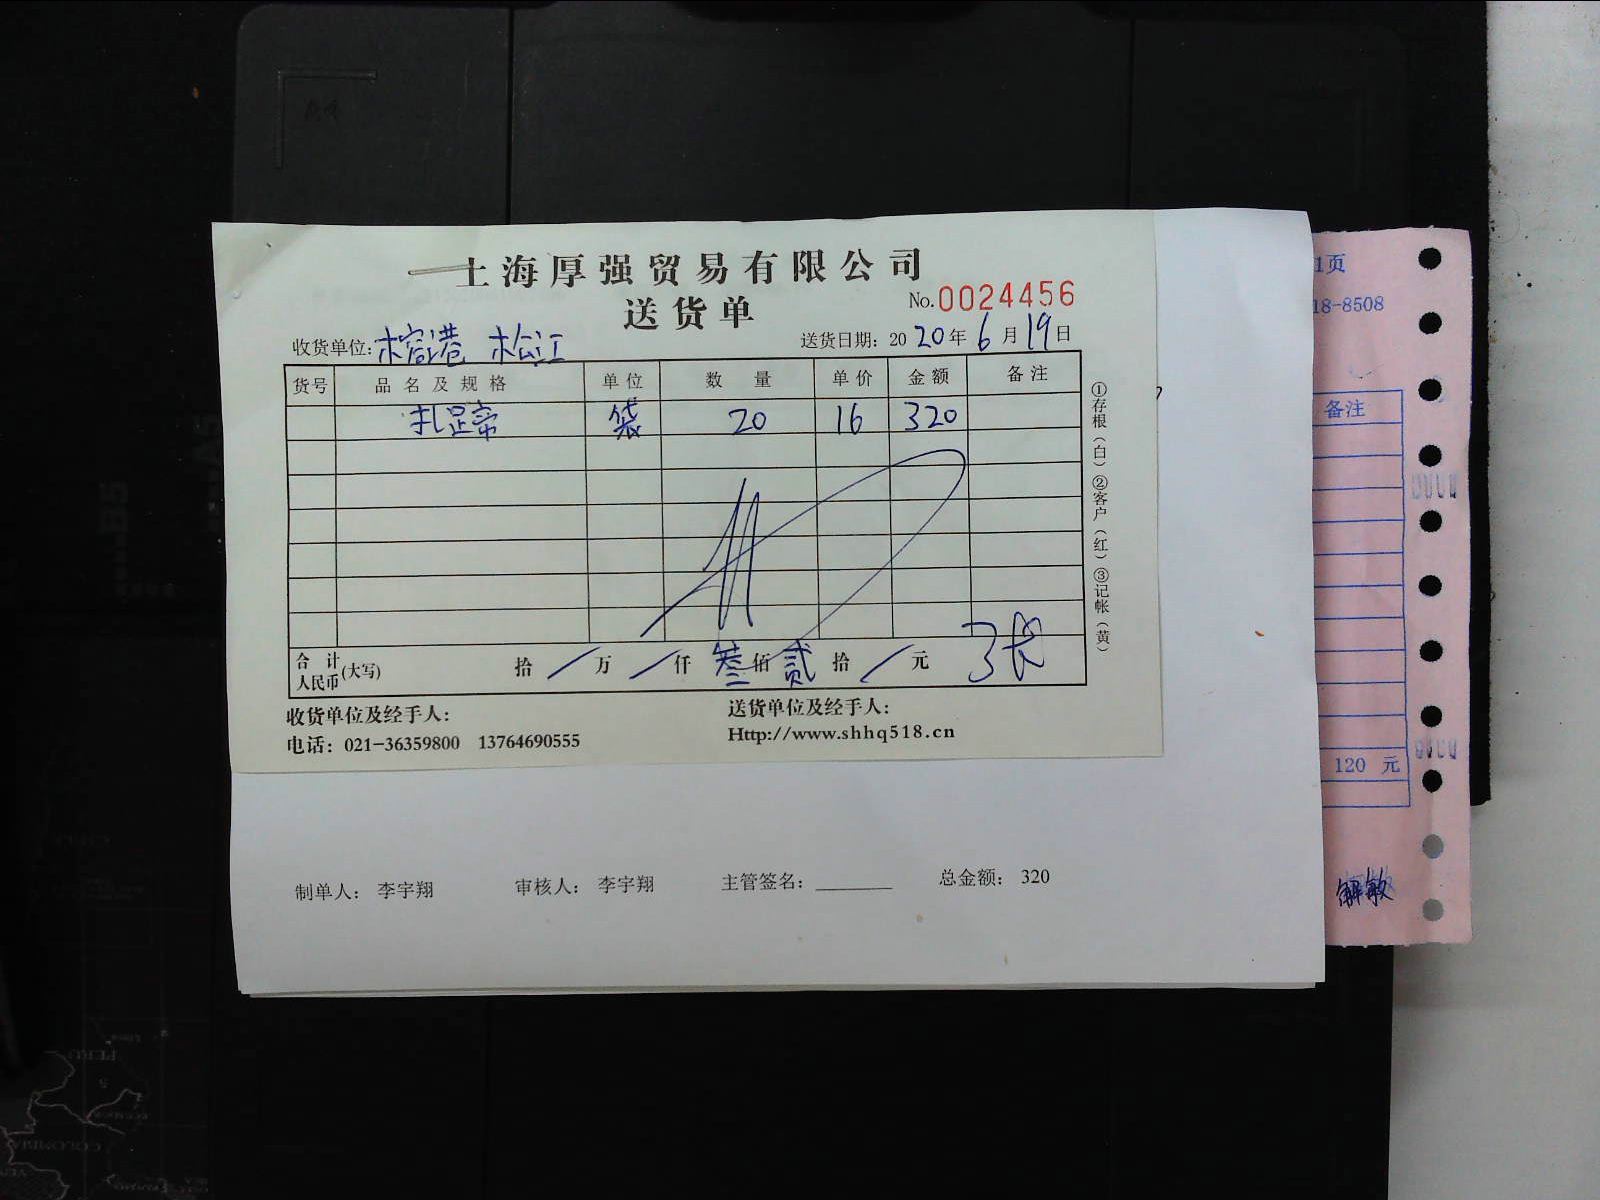 上海厚强贸易有限公司
送货单
No.0024456
收货单位: 榕港 松江
送货日期: 2020年6月19日
货号 品名及规格 单位 数量 单价 金额 备注
扎足帘 袋 20 16 320
合计人民币(大写) 拾 / 万 / 仟 叁 佰 贰 拾 / 元
①存根(白)②客户(红)③记帐(黄)
收货单位及经手人: 送货单位及经手人:
电话: 021-36359800 13764690555 Http://www.shhq518.cn
制单人: 李宇翔 审核人: 李宇翔 主管签名: ________ 总金额: 320
1页
18-8508
备注
120 元